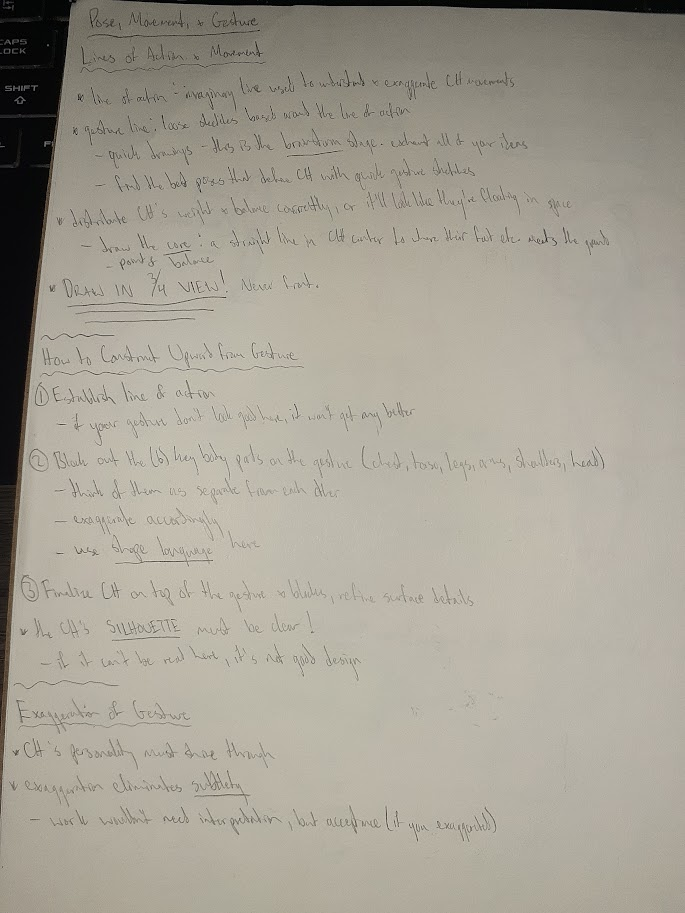 CAPS
LOCK
SHIFT
Pose, Movement, + Gesture
Lines of Action & Movement
* line of action : imaginary line used to understand & exaggerate CH movements
* gesture line : loose sketches based around the line of action
- quick drawings - this is the brainstorm stage - exhaust all of your ideas
- find the best poses that define CH with quick gesture sketches
* distribute CH's weight & balance correctly, or it'll look like they're floating in space
- draw the core : a straight line in CH center to where their feet etc. meets the ground
- point of balance
* DRAW IN 3/4 VIEW! Never front.
How to Construct Upward from Gesture
① Establish line of action
- if your gesture don't look good here, it won't get any better
② Block out the (6) key body parts on the gesture (chest, torso, legs, arms, shoulders, head)
- think of them as separate from each other
- exaggerate accordingly
- use shape language here
③ Finalize CH on top of the gesture & blocks, refine surface details
* the CH's SILHOUETTE must be clear!
- if it can't be read here, it's not good design
Exaggeration of Gesture
* CH's personality must shine through
* exaggeration eliminates subtlety
- work wouldn't need interpretation, but acceptance (if you exaggerated)